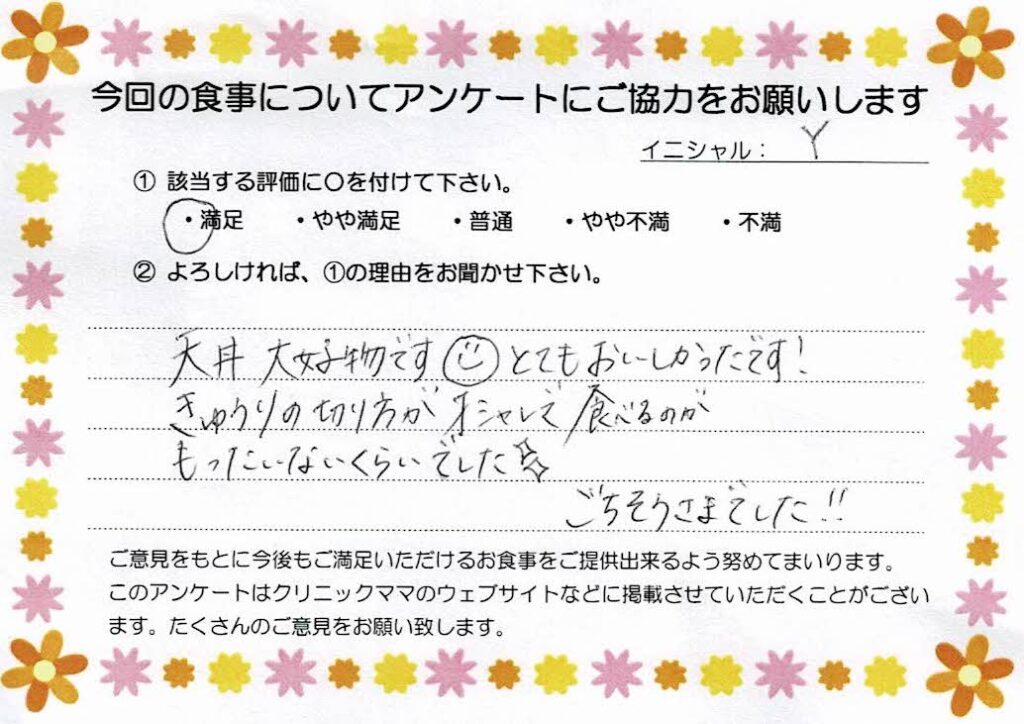 今回の食事についてアンケートにご協力をお願いします
イニシャル： Y
① 該当する評価に〇を付けて下さい。
・満足 ・やや満足 ・普通 ・やや不満 ・不満
② よろしければ、①の理由をお聞かせ下さい。
天丼 大好物です☺とてもおいしかったです！
きゅうりの切り方がオシャレで食べるのが
もったいないくらいでした✨
ごちそうさまでした!!
ご意見をもとに今後もご満足いただけるお食事をご提供出来るよう努めてまいります。
このアンケートはクリニックママのウェブサイトなどに掲載させていただくことがござい
ます。たくさんのご意見をお願い致します。